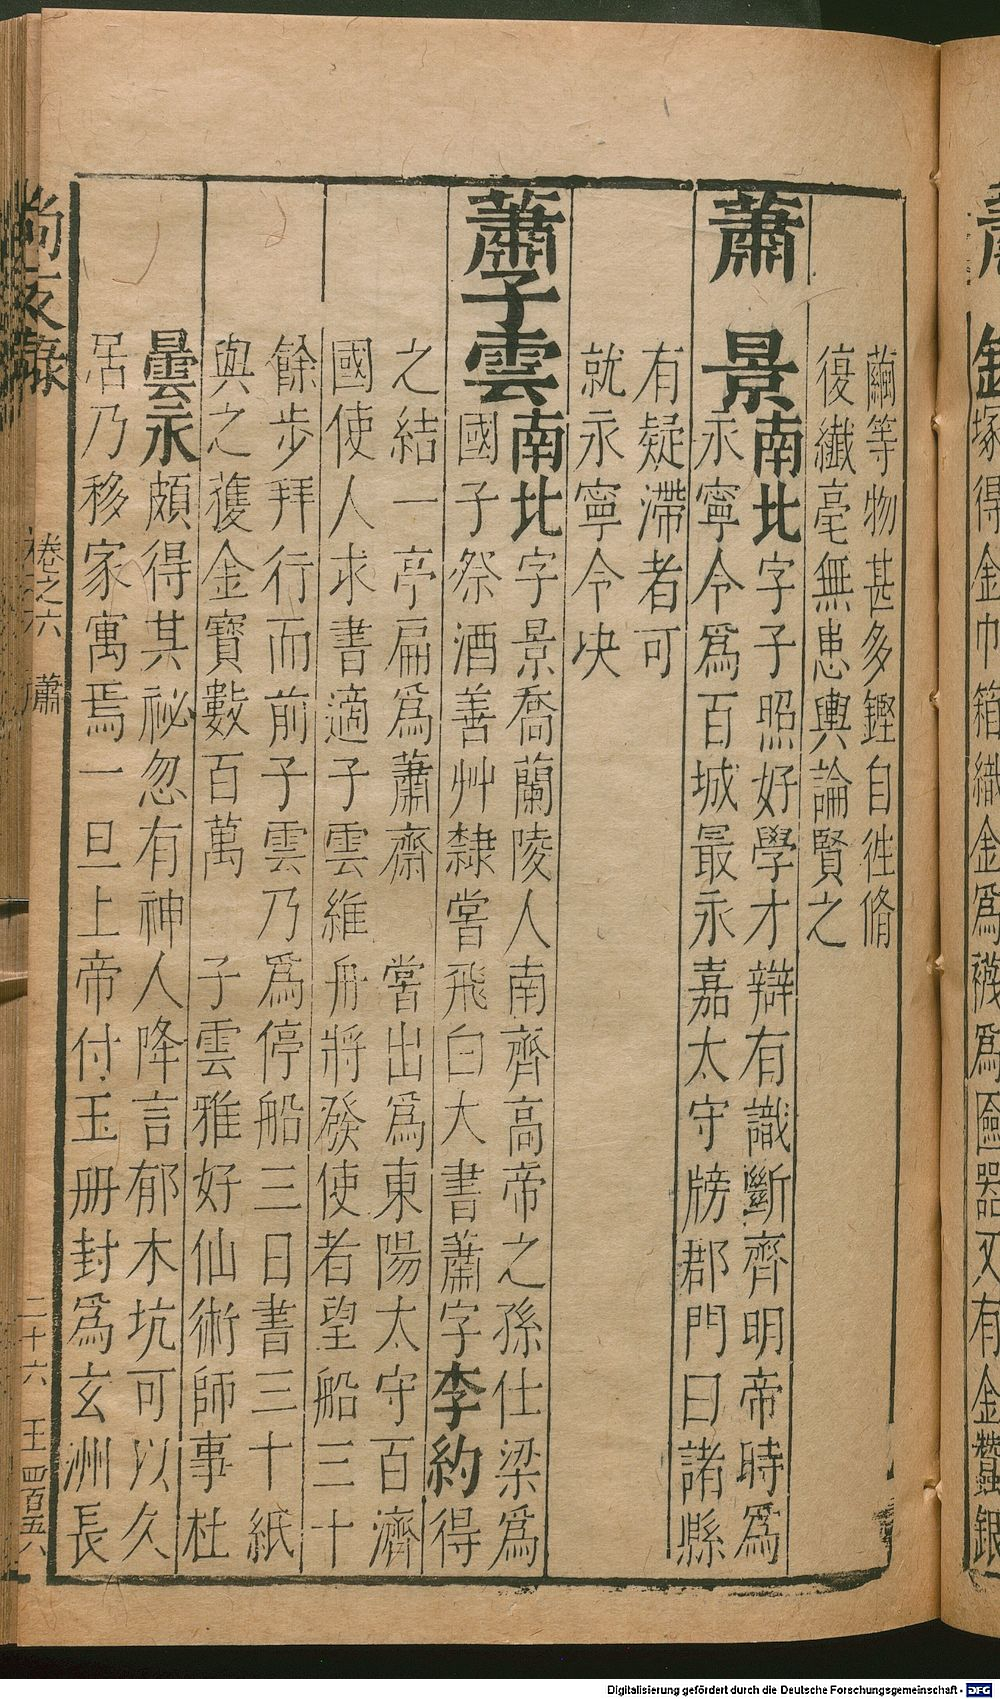 繭等物甚多鏗自徃脩
復纎毫無患輿論賢之
蕭景南北字子照好學才辯有識斷齊明帝時爲
永寧令爲百城最永嘉太守牓郡門曰諸縣
有疑滯者可
就永寧令决
蕭子雲南北字景喬蘭陵人南齊高帝之孫仕梁爲
國子祭酒善艸隸嘗飛白大書蕭字李約得
之結一亭扁爲蕭齋 嘗出爲東陽太守百濟
國使人求書適子雲維舟將發使者望船三十
餘步拜行而前子雲乃爲停船三日書三十紙
與之獲金寶數百萬 子雲雅好仙術師事杜
曇永頗得其祕忽有神人降言郁木坑可以久
居乃移家寓焉一旦上帝付玉册封爲玄洲長
尚友錄 卷之六 蕭 二十六 王 四百五八
金巾箱織金爲襪爲匳器又有金蠶銀